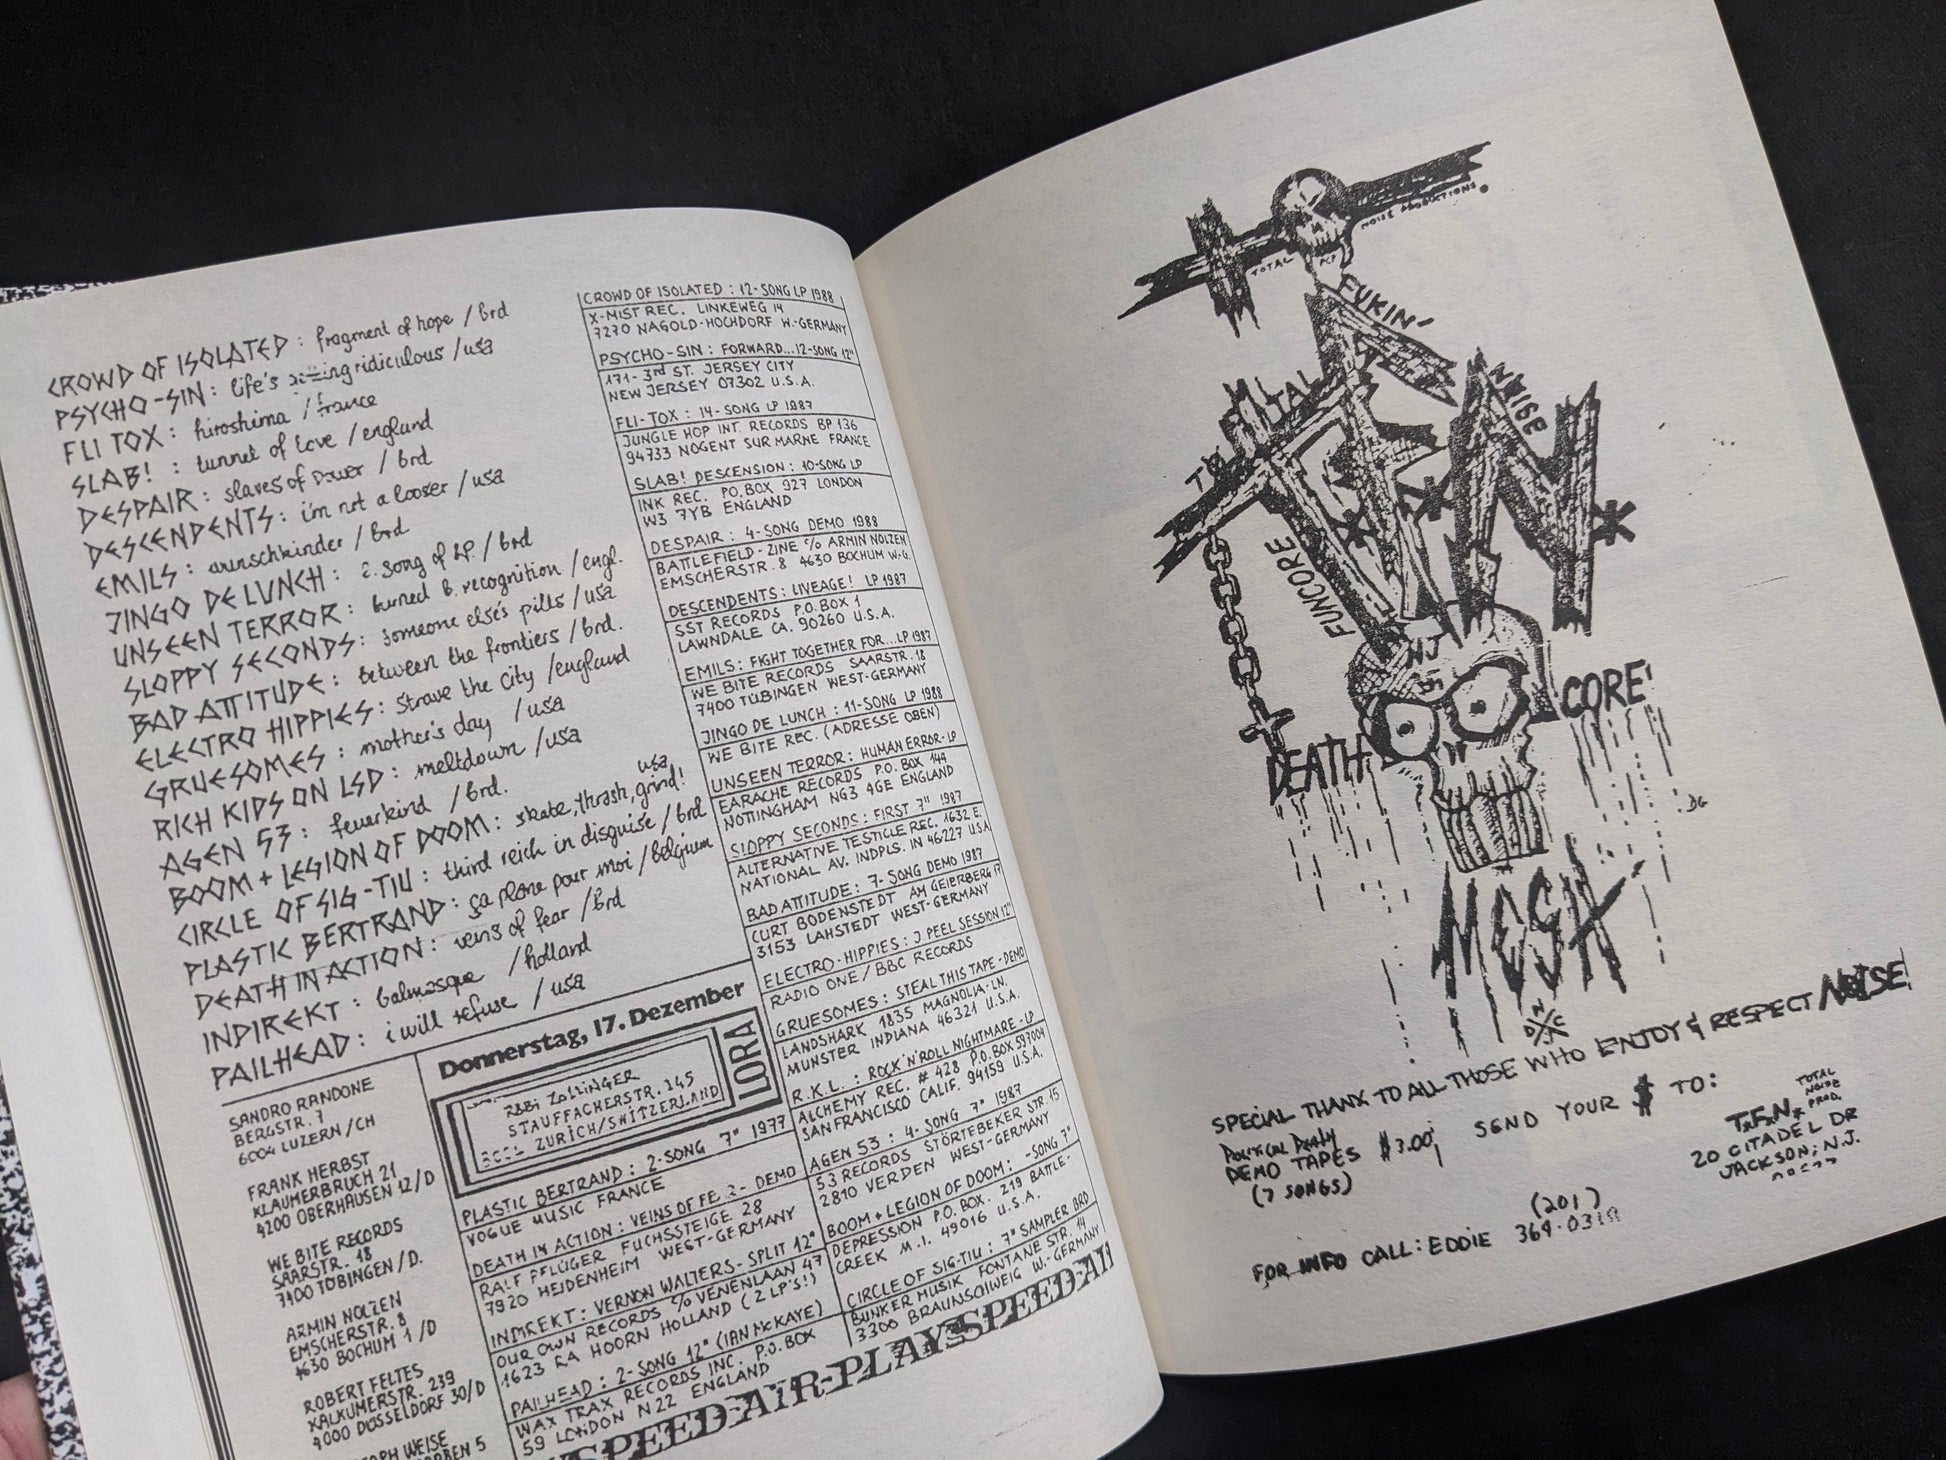 CROWD OF ISOLATED : fragment of hope / brd
PSYCHO-SIN : life's ridiculous / usa
FLI TOX : hiroshima / france
SLAB! : tunnel of love / england
DESPAIR : slaves of power / brd
DESCENDENTS : i'm not a looser / usa
EMILS : wunschkinder / brd
JINGO DE LUNCH : 2. song of LP. / brd
UNSEEN TERROR : burned b. recognition / engl.
SLOPPY SECONDS : someone else's pills / usa
BAD ATTITUDE : between the frontiers / brd.
ELECTRO HIPPIES : strave the city / england
GRUESOMES : mother's day / usa
RICH KIDS ON LSD : meltdown / usa
AGEN 53 : feuerkind / brd.
BOOM + LEGION OF DOOM : skate, thrash, grind! usa
CIRCLE OF SIG-TIU : third reich in disguise / brd
PLASTIC BERTRAND : ça plane pour moi / belgium
DEATH IN ACTION : veins of fear / brd
INDIREKT : balmasque / holland
PAILHEAD : i will refuse / usa
SANDRO RANDONE
BERGSTR. 7
6004 LUZERN / CH
FRANK HERBST
KLAUMERBRUCH 21
4200 OBERHAUSEN 12/D
WE BITE RECORDS
SAARSTR. 18
7400 TÜBINGEN / D.
ARMIN NOLZEN
EMSCHERSTR. 8
4630 BOCHUM 1 / D
ROBERT FELTES
KALKUMERSTR. 239
4000 DÜSSELDORF 30/D
WEISE
5
Donnerstag, 17. Dezember
LORA
ZOLLINGER
STAUFFACHERSTR. 145
ZURICH/SWITZERLAND
PLASTIC BERTRAND : 2-SONG 7" 1977
VOGUE MUSIC FRANCE
DEATH IN ACTION : VEINS OF - DEMO
RALF PFLÜGER FUCHSSTEIGE 28
7920 HEIDENHEIM WEST-GERMANY
INDIREKT : VERNON WALTERS - SPLIT 12"
OUR OWN RECORDS % VENENLAAN 47
1623 RA HOORN HOLLAND (2 LP'S!)
PAILHEAD : 2-SONG 12" (IAN McKAYE)
WAX TRAX RECORDS INC. P.O. BOX
59 LONDON N22 ENGLAND
CROWD OF ISOLATED : 12-SONG LP 1988
X-MIST REC. LINKEWEG 14
7270 NAGOLD-HOCHDORF W.-GERMANY
PSYCHO-SIN : FORWARD...12-SONG 12"
171- 3rd ST. JERSEY CITY
NEW JERSEY 07302 U.S.A.
FLI-TOX : 14-SONG LP 1987
JUNGLE HOP INT. RECORDS BP 136
94733 NOGENT SUR MARNE FRANCE
SLAB! DESCENSION : 10-SONG LP
INK REC. P.O. BOX 927 LONDON
W3 7YB ENGLAND
DESPAIR : 4-SONG DEMO 1988
BATTLEFIELD-ZINE % ARMIN NOLZEN
EMSCHERSTR. 8 4630 BOCHUM W.G.
DESCENDENTS : LIVEAGE! LP 1987
SST RECORDS P.O. BOX 1
LAWNDALE CA. 90260 U.S.A.
EMILS : FIGHT TOGETHER FOR...LP 1987
WE BITE RECORDS SAARSTR. 18
7400 TÜBINGEN WEST-GERMANY
JINGO DE LUNCH : 11-SONG LP 1988
WE BITE REC. (ADRESSE OBEN)
UNSEEN TERROR : HUMAN ERROR-LP
EARACHE RECORDS P.O. BOX 144
NOTTINGHAM NG3 4GE ENGLAND
SLOPPY SECONDS : FIRST 7" 1987
ALTERNATIVE TESTICLE REC. 1632 E.
NATIONAL AV. INDPLS. IN 46227 U.S.A
BAD ATTITUDE : 7-SONG DEMO 1987
CURT BODENSTEDT AM GEIERBERG 17
3153 LAHSTEDT WEST-GERMANY
ELECTRO-HIPPIES : J PEEL SESSION 12"
RADIO ONE / BBC RECORDS
GRUESOMES : STEAL THIS TAPE - DEMO
LANDSHARK 1835 MAGNOLIA-LN.
MUNSTER INDIANA 46321 U.S.A.
R.K.L. : ROCK'N'ROLL NIGHTMARE - LP
ALCHEMY REC. # 428 P.O. BOX 597004
SAN FRANCISCO CALIF. 94159 U.S.A.
AGEN 53 : 4-SONG 7" 1987
53 RECORDS STÖRTEBEKER STR. 15
2810 VERDEN WEST-GERMANY
BOOM + LEGION OF DOOM : -SONG 7"
DEPRESSION P.O. BOX. 219 BATTLE-
CREEK M.I. 49016 U.S.A.
CIRCLE OF SIG-TIU : 7" SAMPLER BRD
BUNKER MUSIK FONTANE STR. 14
3300 BRAUNSCHWEIG W.-GERMANY
SPEED-AIR-PLAY-SPEED-AI
NOISE PRODUCTIONS.
TOTAL
FUKIN'
TOTAL
NOISE
T.F.N.
FUNCORE
NJ
DEATH
CORE'
DG
MESH
N
D C
SPECIAL THANX TO ALL THOSE WHO ENJOY & RESPECT NOISE
POLITICAL DEATH
DEMO TAPES $3.00
(7 SONGS)
SEND YOUR $ TO:
T.F.N.
TOTAL
NOISE
PROD.
20 CITADEL DR
JACKSON, N.J.
FOR INFO CALL: EDDIE (201)